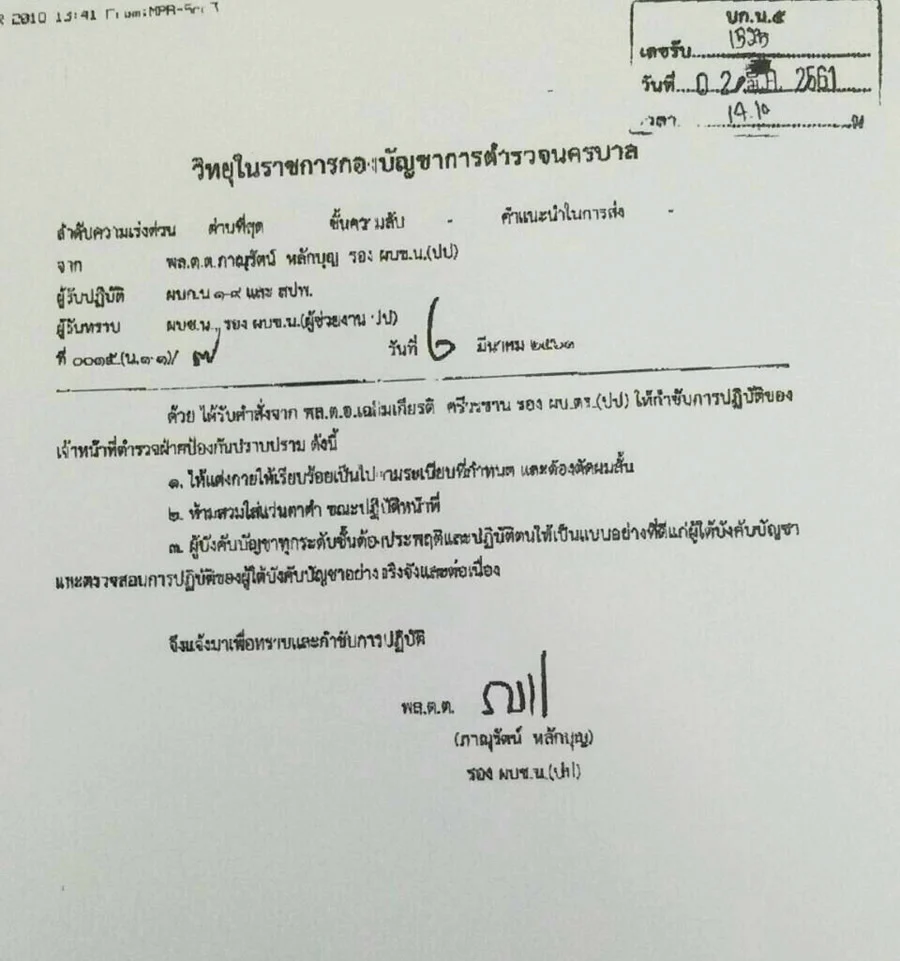 2010 13:41 From:MPR-
บก.น.๕
เลขรับ
วันที่ 0 2 มี.ค. 2561
เวลา 14.10 น
วิทยุในราชการกองบัญชาการตำรวจนครบาล
ลำดับความเร่งด่วน ด่วนที่สุด ชั้นความลับ - คำแนะนำในการส่ง -
จาก พล.ต.ต.ภาณุรัตน์ หลักบุญ รอง ผบช.น.(ปป)
ผู้รับปฏิบัติ ผบก.น ๑-๙ และ สปพ.
ผู้รับทราบ ผบช.น., รอง ผบช.น.(ผู้ช่วยงาน ปป)
ที่ ๐๐๑๕.(น.๑.๑)/ ๗ วันที่ ๒ มีนาคม ๒๕๖๑
ด้วย ได้รับคำสั่งจาก พล.ต.อ.เฉลิมเกียรติ ศรีวรขาน รอง ผบ.ตร.(ปป) ให้กำชับการปฏิบัติของ
เจ้าหน้าที่ตำรวจฝ่ายป้องกันปราบปราม ดังนี้
๑. ให้แต่งกายให้เรียบร้อยเป็นไปตามระเบียบที่กำหนด และต้องตัดผมสั้น
๒. ห้ามสวมใส่แว่นตาดำ ขณะปฏิบัติหน้าที่
๓. ผู้บังคับบัญชาทุกระดับชั้นต้องประพฤติและปฏิบัติตนให้เป็นแบบอย่างที่ดีแก่ผู้ใต้บังคับบัญชา
และตรวจสอบการปฏิบัติของผู้ใต้บังคับบัญชาอย่างจริงจังและต่อเนื่อง
จึงแจ้งมาเพื่อทราบและกำชับการปฏิบัติ
พล.ต.ต.
(ภาณุรัตน์ หลักบุญ)
รอง ผบช.น.(ปป)